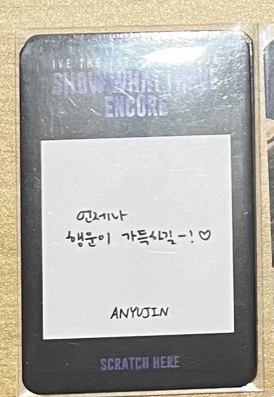 IVE THE 1ST
SHOW WHAT I HAVE
ENCORE
언제나
행운이 가득하길~! ♡
ANYUJIN
SCRATCH HERE